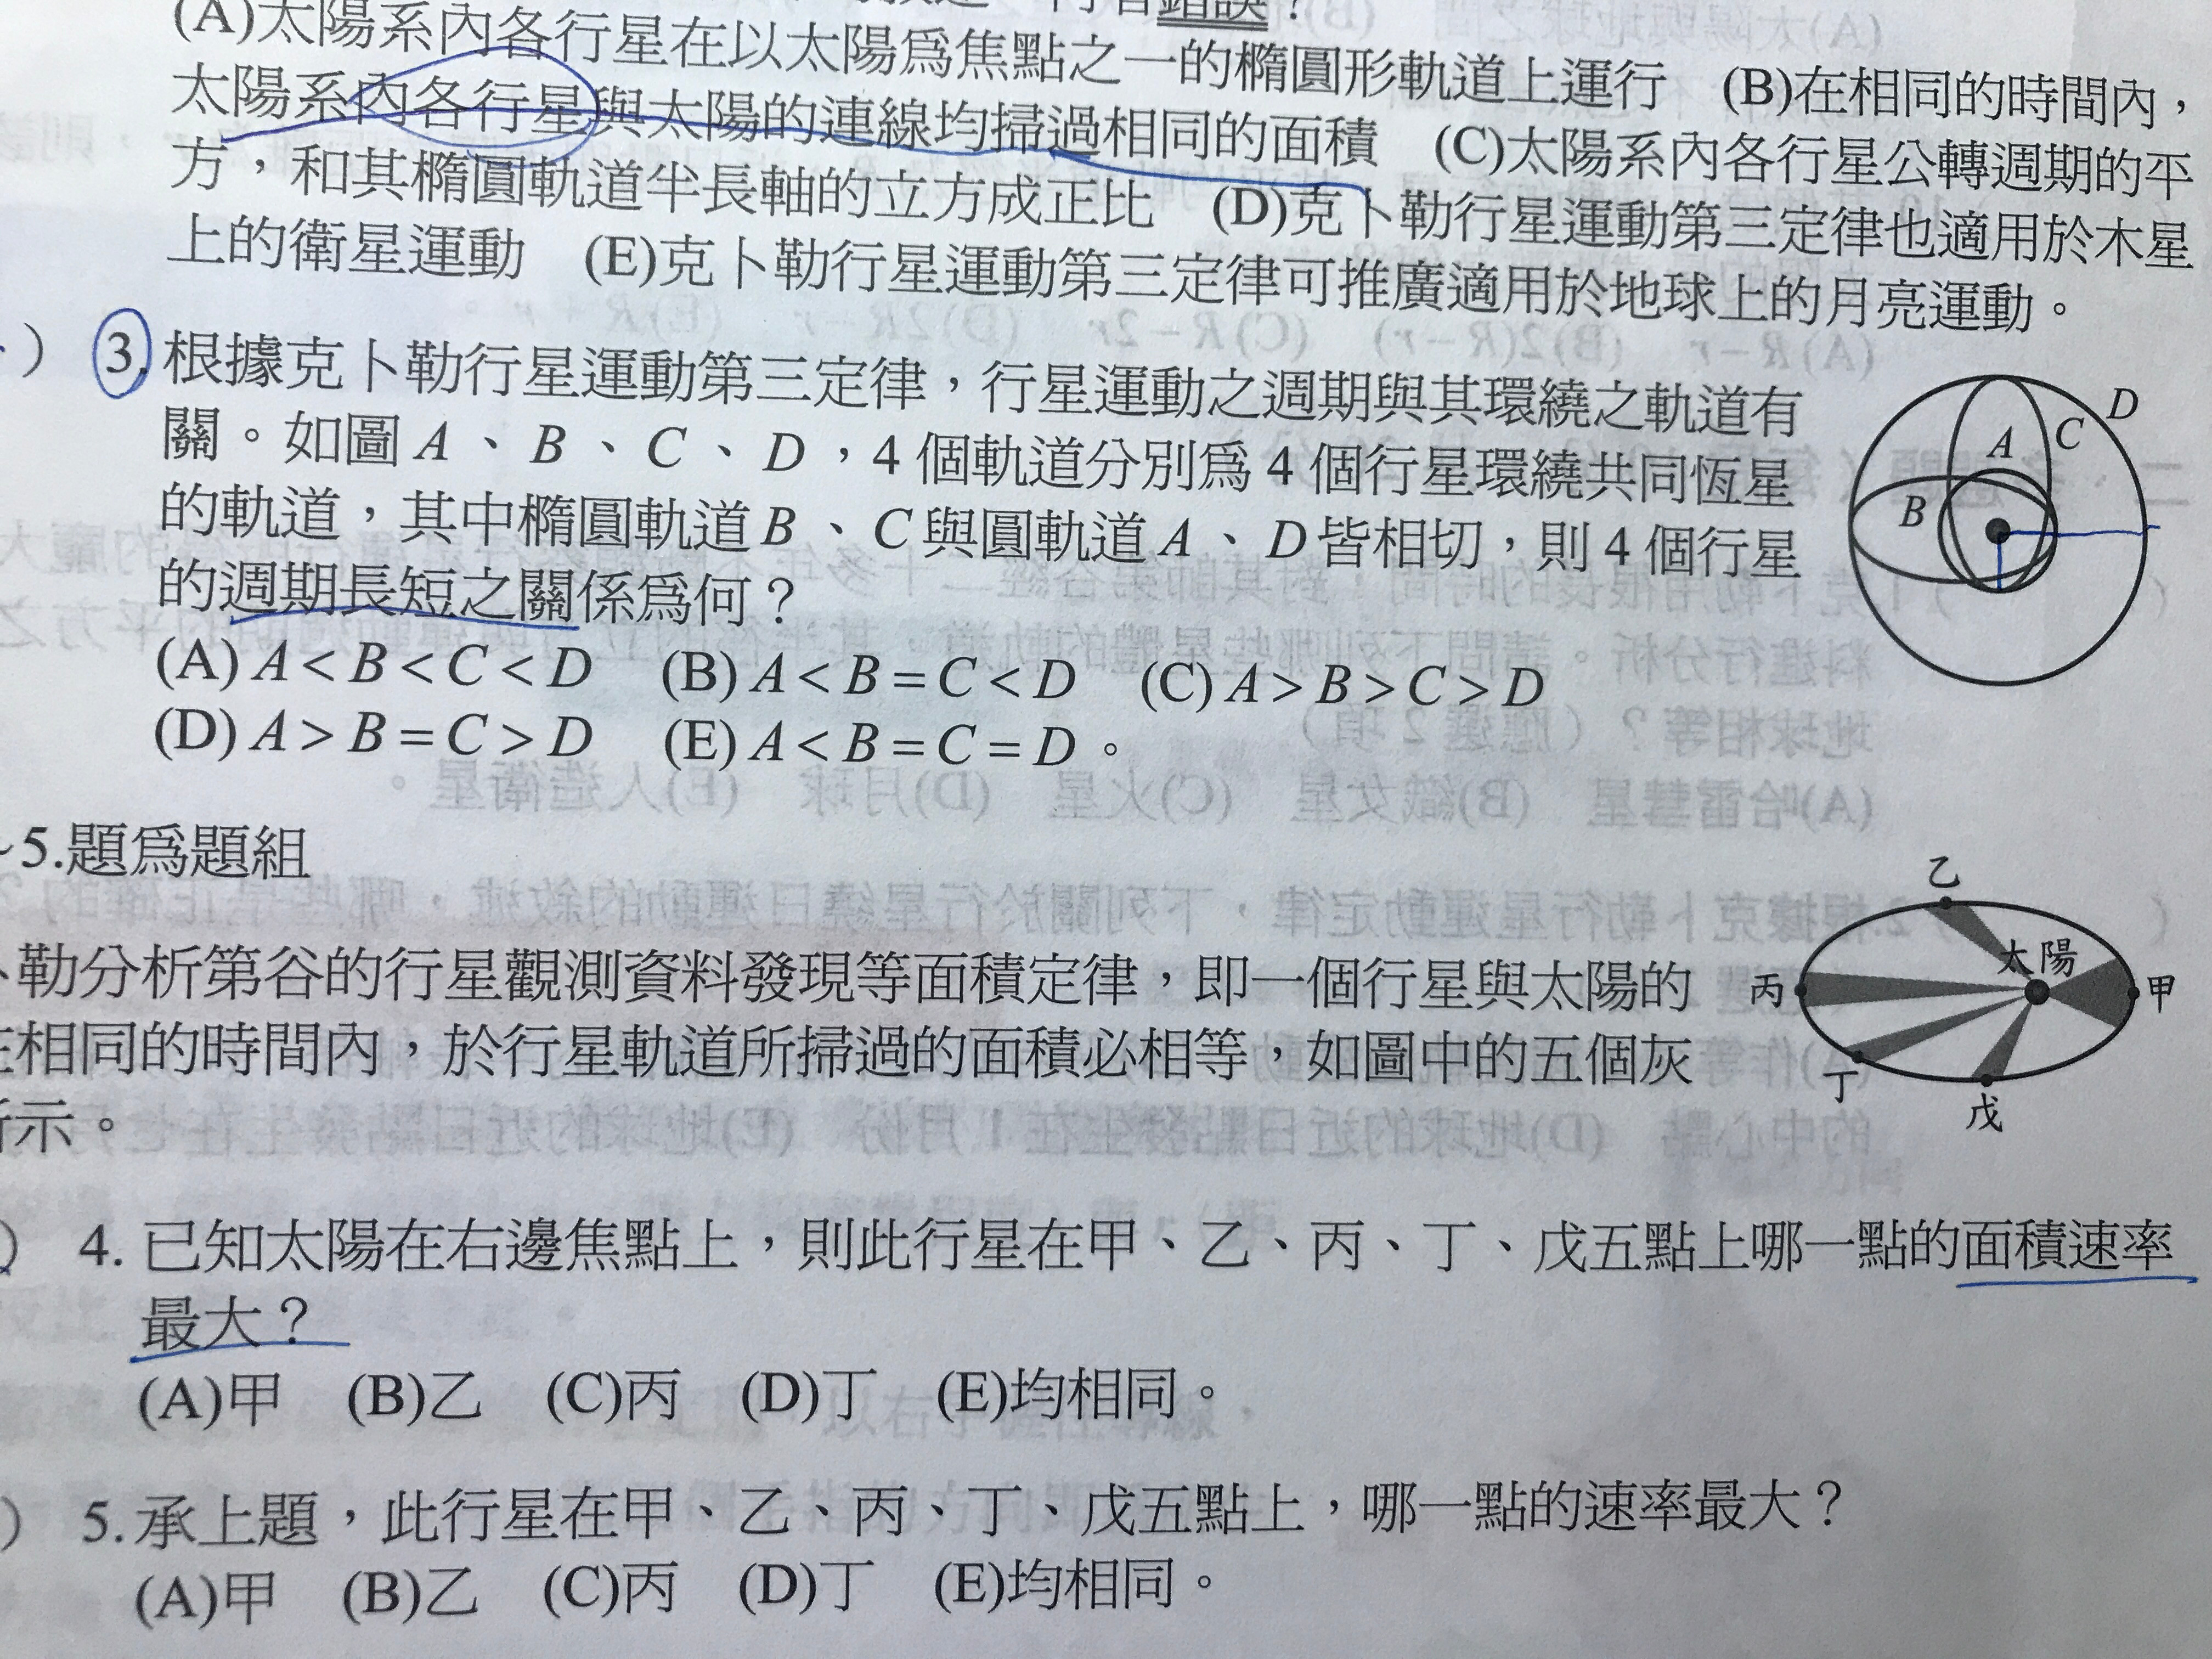 (A)太陽系內各行星在以太陽為焦點之一的橢圓形軌道上運行 (B)在相同的時間內，
太陽系內各行星與太陽的連線均掃過相同的面積 (C)太陽系內各行星公轉週期的平
方，和其橢圓軌道半長軸的立方成正比 (D)克卜勒行星運動第三定律也適用於木星
上的衛星運動 (E)克卜勒行星運動第三定律可推廣適用於地球上的月亮運動。
) 3. 根據克卜勒行星運動第三定律，行星運動之週期與其環繞之軌道有
關。如圖 A、B、C、D，4 個軌道分別為 4 個行星環繞共同恆星
的軌道，其中橢圓軌道 B、C 與圓軌道 A、D 皆相切，則 4 個行星
的週期長短之關係為何？
(A) A < B < C < D (B) A < B = C < D (C) A > B > C > D
(D) A > B = C > D (E) A < B = C = D。
D
C
A
B
5.題為題組
勒分析第谷的行星觀測資料發現等面積定律，即一個行星與太陽的
相同的時間內，於行星軌道所掃過的面積必相等，如圖中的五個灰
示。
乙
太陽
丙
甲
丁
戊
) 4. 已知太陽在右邊焦點上，則此行星在甲、乙、丙、丁、戊五點上哪一點的面積速率
最大？
(A)甲 (B)乙 (C)丙 (D)丁 (E)均相同。
) 5. 承上題，此行星在甲、乙、丙、丁、戊五點上，哪一點的速率最大？
(A)甲 (B)乙 (C)丙 (D)丁 (E)均相同。